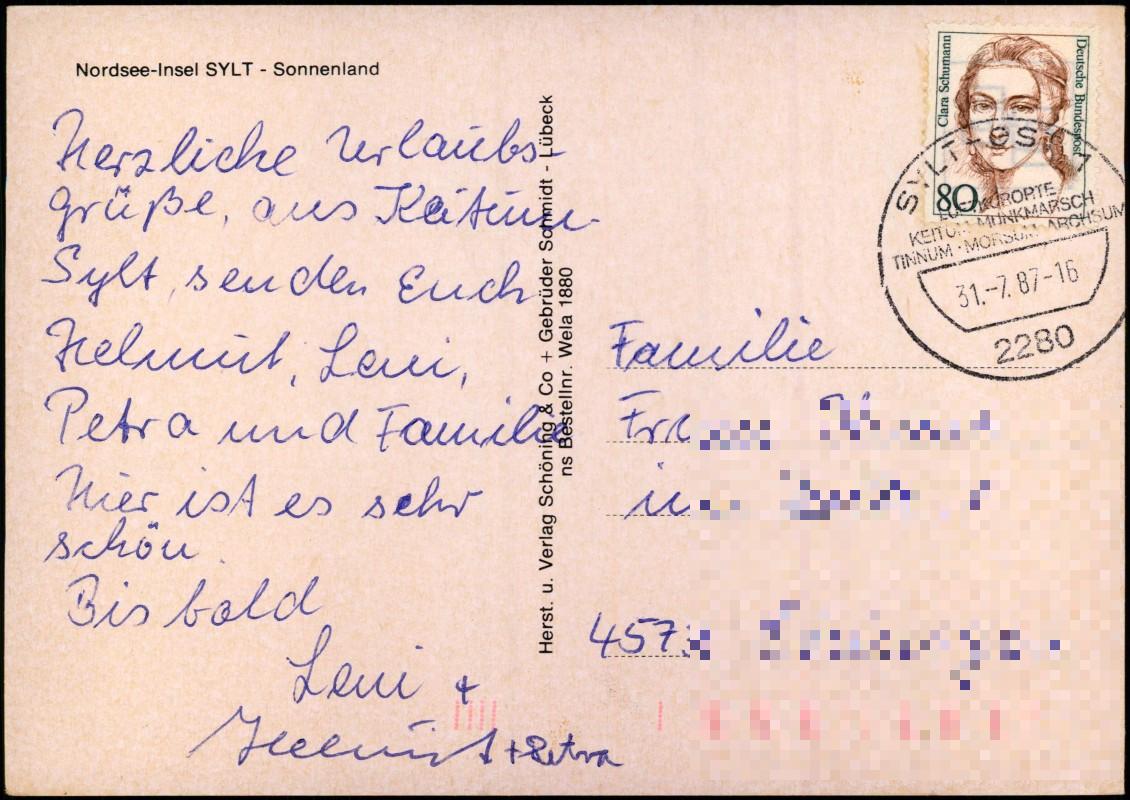 Nordsee-Insel SYLT - Sonnenland
Herzliche Urlaubs-
grüße, aus Keitum-
Sylt, senden Euch
Helmut, Leni,
Petra und Familie
Hier ist es sehr
schön.
Bis bald
Leni +
Helmut + Petra
Herst. u. Verlag Schöning & Co + Gebrüder Schmidt - Lübeck
ns Bestellnr. Wela 1880
Clara Schumann
Deutsche Bundespost
80
SYLT-OST
KURORTE
KEITUM · MUNKMARSCH
TINNUM · MORSUM · ARCHSUM
31.-7.87-16
2280
Familie
in
457